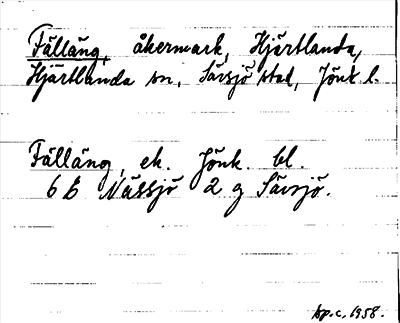 Fälläng, åkermark, Hjärtlanda,
Hjärtlanda sn, Sävsjö stad, Jönk l.
Fälläng, ek. Jönk. bl.
6 E Nässjö 2 g Sävsjö.
sp.c. 1958.